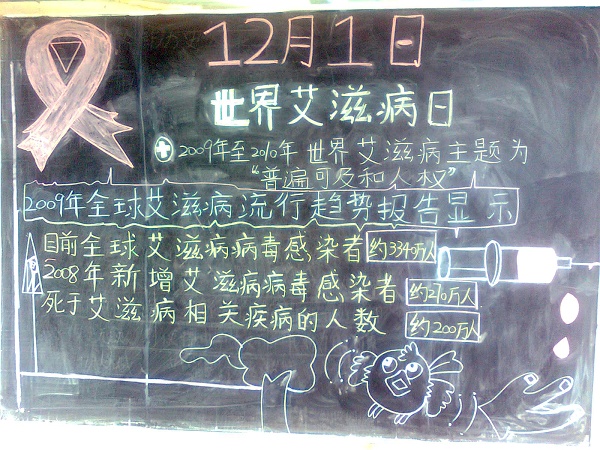 12月1日
世界艾滋病日
2009年至2010年 世界艾滋病主题为
“普遍可及和人权”
2009年全球艾滋病流行趋势报告显示
目前全球艾滋病病毒感染者 约3340万人
2008年新增艾滋病病毒感染者 约270万人
死于艾滋病相关疾病的人数 约200万人